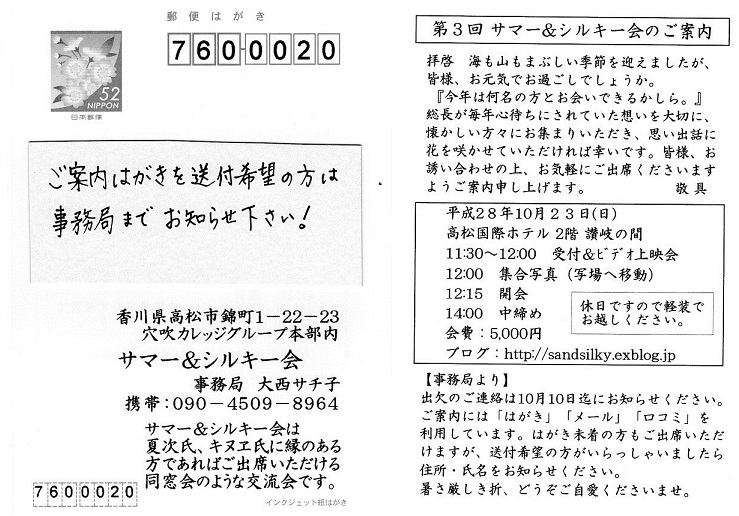 郵便はがき
7600020
52
NIPPON
日本郵便
ご案内はがきを送付希望の方は
事務局まで お知らせ下さい！
香川県高松市錦町1－22－23
穴吹カレッジグループ本部内
サマー＆シルキー会
事務局 大西サチ子
携帯：090－4509－8964
サマー＆シルキー会は
夏次氏、キヌヱ氏に縁のある
方であればご出席いただける
同窓会のような交流会です。
7600020
インクジェット紙はがき
第3回 サマー&シルキー会のご案内
拝啓 海も山もまぶしい季節を迎えましたが、
皆様、お元気でお過ごしでしょうか。
『今年は何名の方とお会いできるかしら。』
総長が毎年心待ちにされていた想いを大切に、
懐かしい方々にお集まりいただき、思い出話に
花を咲かせていただければ幸いです。皆様、お
誘い合わせの上、お気軽にご出席くださいます
ようご案内申し上げます。 敬具
平成28年10月23日(日)
高松国際ホテル 2階 讃岐の間
11:30～12:00 受付&ビデオ上映会
12:00 集合写真（写場へ移動）
12:15 開会
14:00 中締め
休日ですので軽装で
お越しください。
会費：5,000円
ブログ：http://sandsilky.exblog.jp
【事務局より】
出欠のご連絡は10月10日迄にお知らせください。
ご案内には「はがき」「メール」「口コミ」を
利用しています。はがき未着の方もご出席いただ
けますが、送付希望の方がいらっしゃいましたら
住所・氏名をお知らせください。
暑さ厳しき折、どうぞご自愛くださいませ。